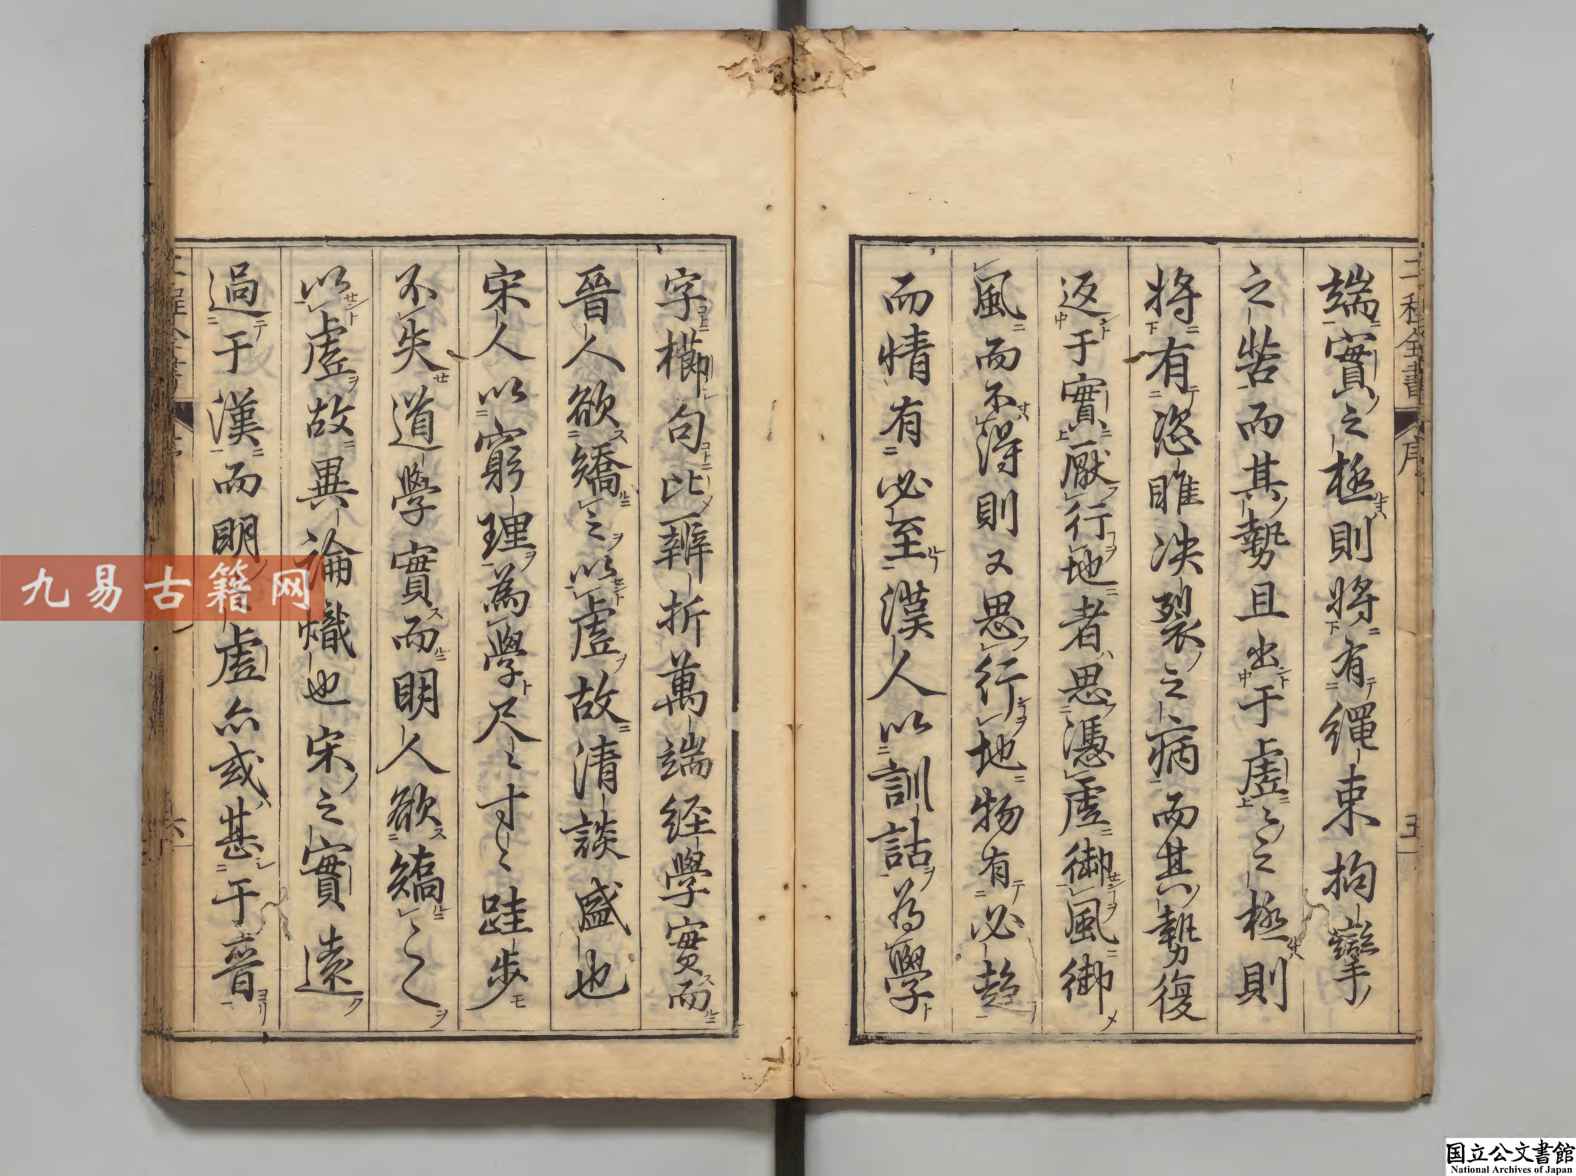 端實之極則將有繩束拘攣
之苦而其勢且出于虛虛之極則
將有恣睢决裂之病而其勢復
返于實厭行地者思憑虛御風御
風而不得則又思行地物有必趋
而情有必至漢人以訓詁為學
字櫛句比辨折萬端経學實而
晉人欲矯之以虛故清談盛也
宋人以窮理為學尺尺寸寸跬步
不失道學實而明人欲矯之
以虛故異論熾也宋之實遠
過于漢而明虛亦或甚于晉
二程全書
序
五
九易古籍网
国立公文書館
National Archives of Japan